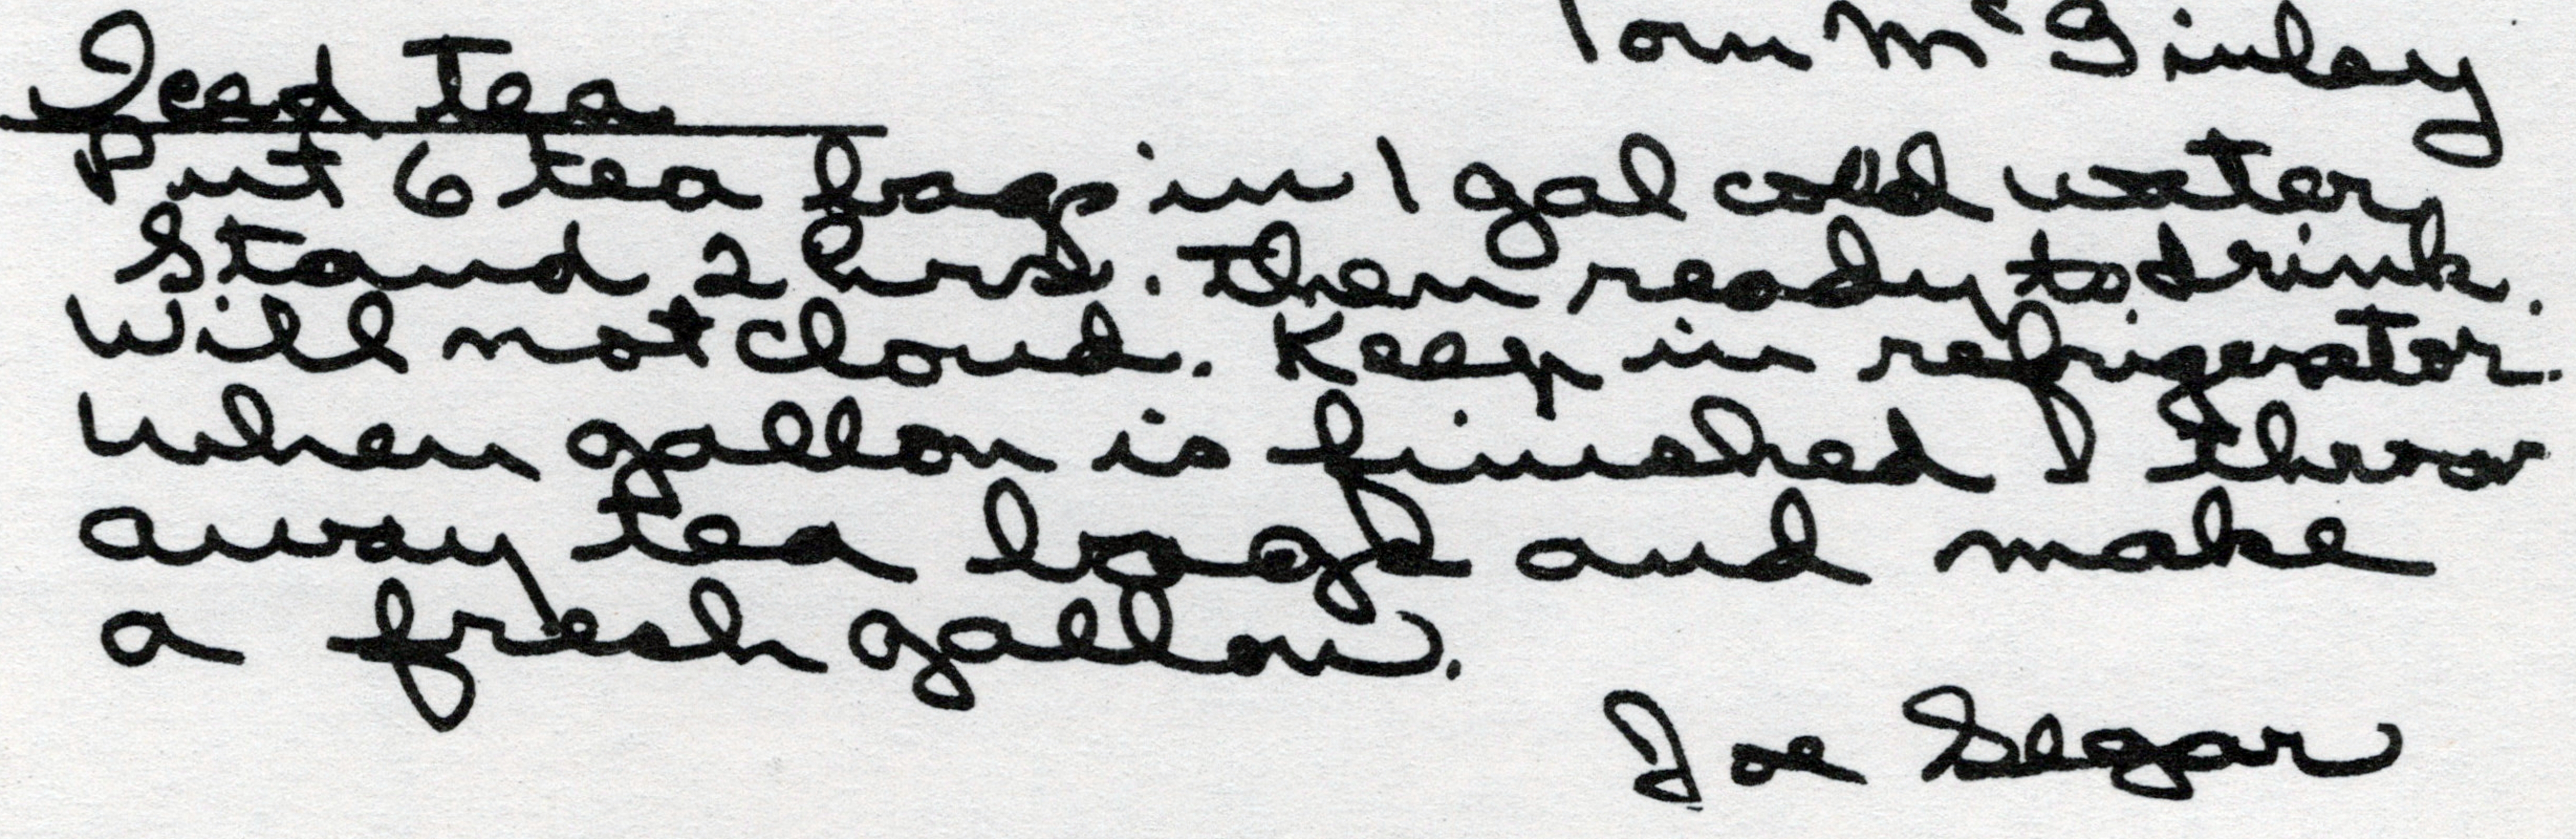 Tom McGinley
Iced Tea
Put 6 tea bags in 1 gal cold water,
Stand 2 hrs. Then ready to drink.
Will not cloud. Keep in refrigerator.
When gallon is finished I throw
away tea bags and make
a fresh gallon.
Joe Segar